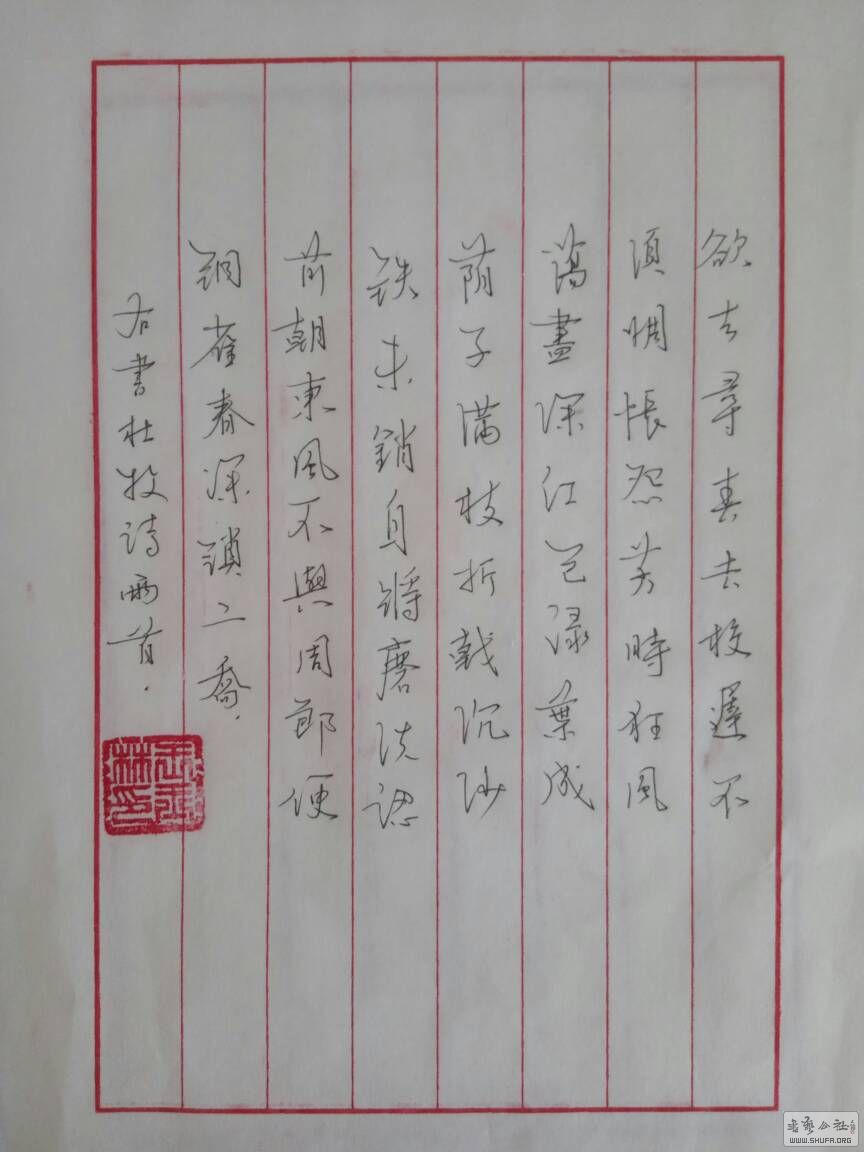 欲去尋春去校遲不
須惆悵怨芳時狂風
蕩盡深紅色綠葉成
荫子滿枝折戟沉沙
铁未銷自將磨洗認
前朝東風不與周郎便
銅雀春深鎖二喬.
右書杜牧詩兩首.
書藝公社
WWW.SHUFA.ORG